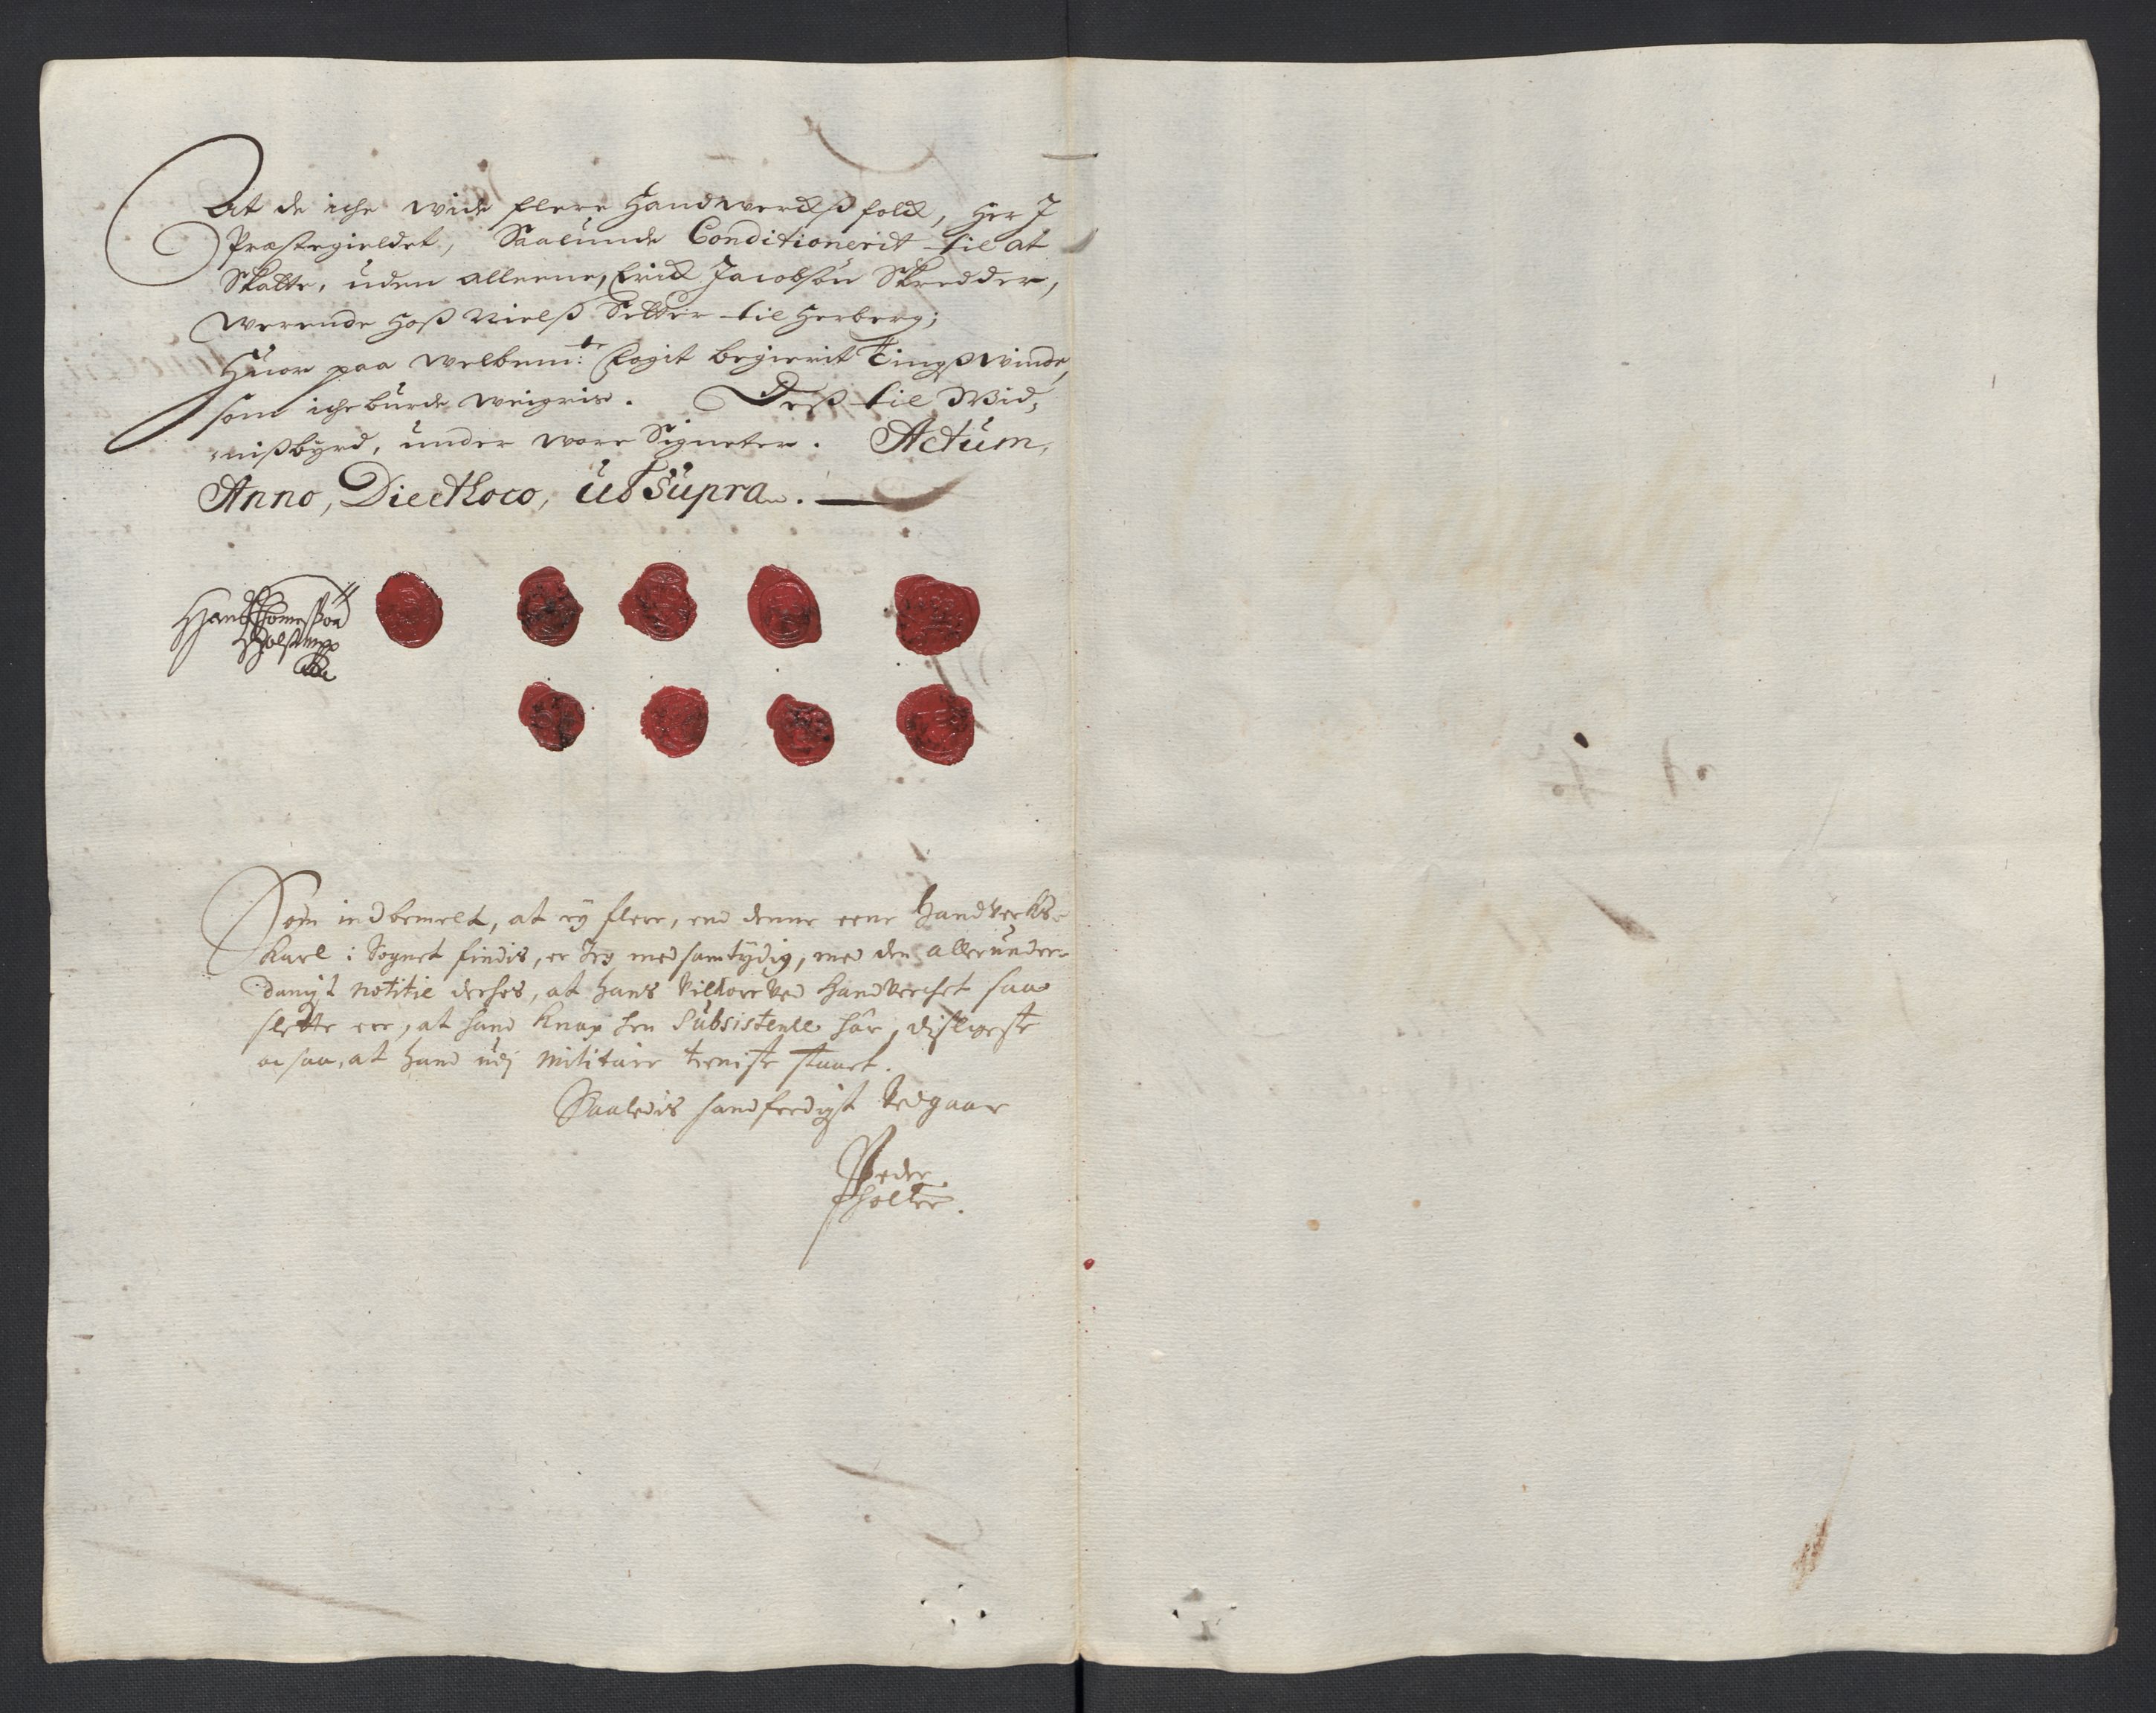 At de iche wide flere Handwerckßfolck, her J
Præstegieldet, Saalunde Conditionerit til at
Skatte, uden alleene, Erick Jacobsøn Skredder,
werende hoß Nielß Setter til Herberg;
Huor paa welbem:te Fogit begierit Tingßwinde,
som iche burde weigris. Deß til Wid,
nißbyrd, under wore Signeter. Actum,
Anno, Die et Loco, ut supra.
Hans Thomesøn
Holst mpp
Som indbemelt, at ey flere, end denne eene Handverks-
Karl i Sognet findis, er Jeg medsamtydig, med den allerunder-
danigst notitie derhos, at hans vilkor ved Handverchet saa
slette ere, at hand knap sin Subsistence har, disligeste
ocsaa, at hand udj militair tieniste staaet.
Saaledis sandferdigst vedgaar
Peder
Holter.